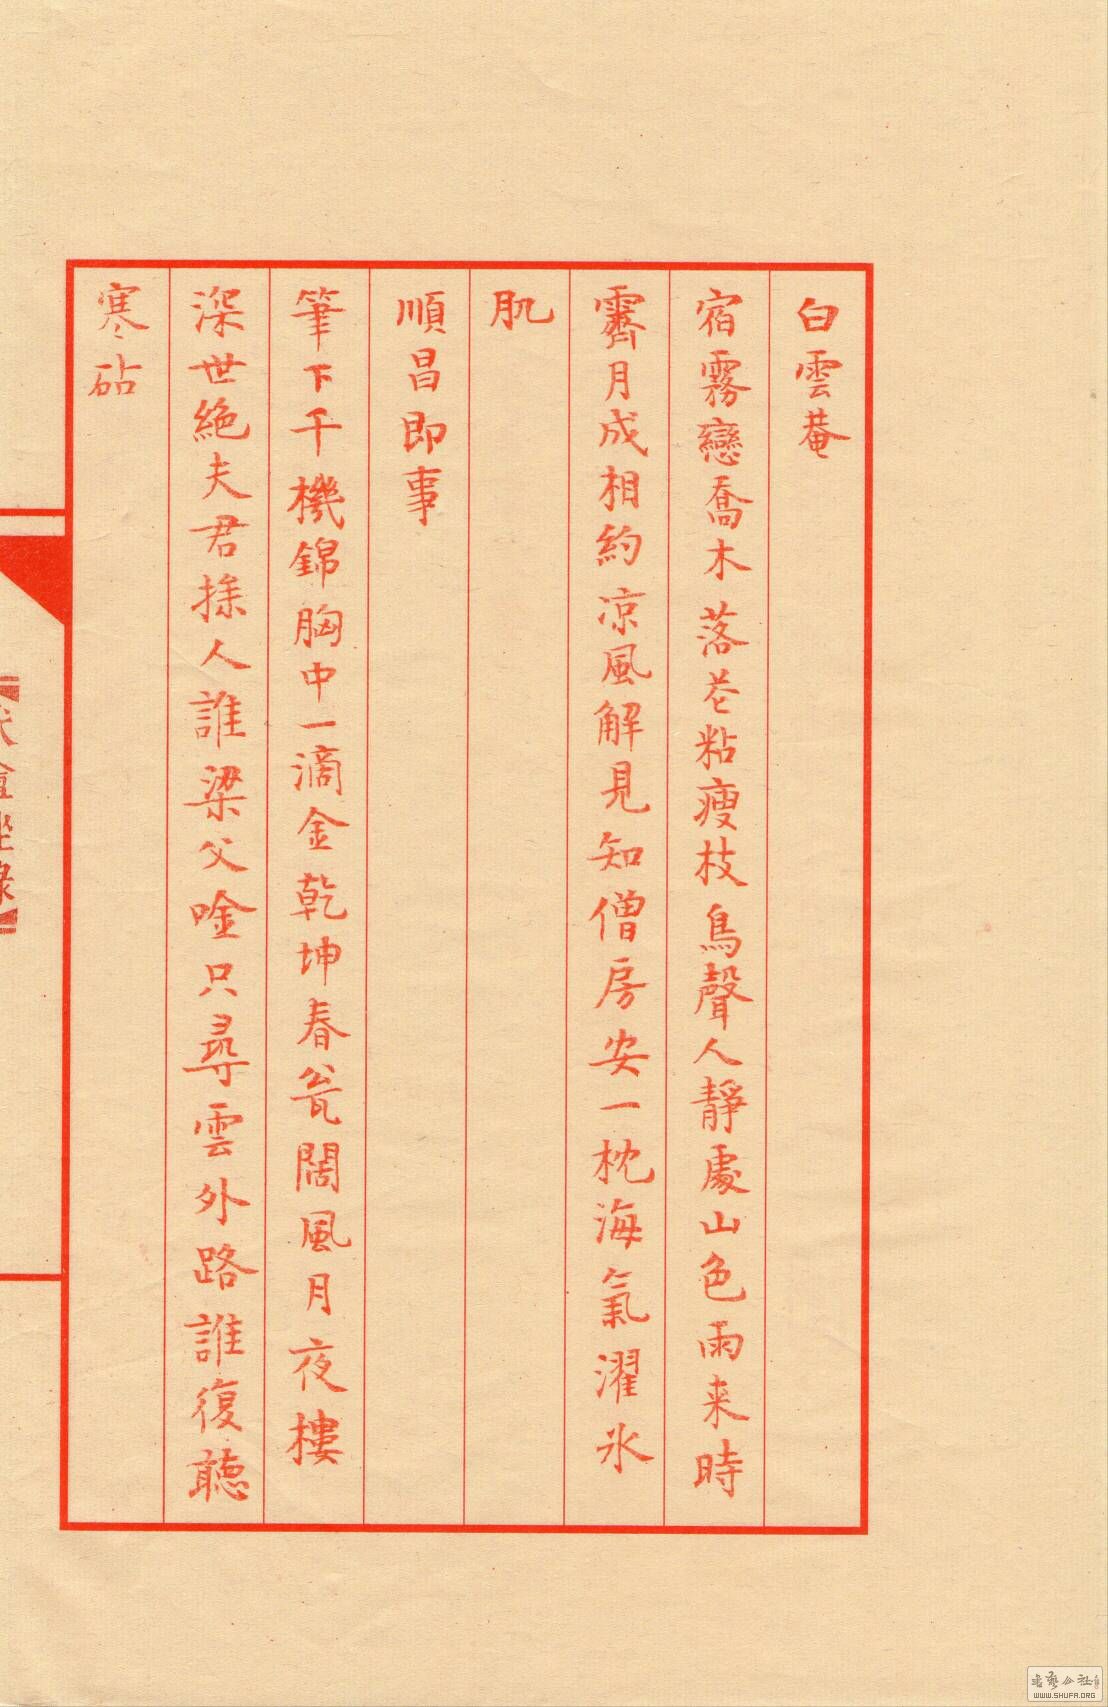 白雲菴
宿霧戀喬木落花粘瘦枝鳥聲人靜處山色雨来時
霽月成相約凉風解見知僧房安一枕海氣濯氷
肌
順昌即事
筆下千機錦胸中一滴金乾坤春瓮闊風月夜樓
深世絕夫君操人誰梁父唫只尋雲外路誰復聽
寒砧
書藝公社
WWW.SHUFA.ORG